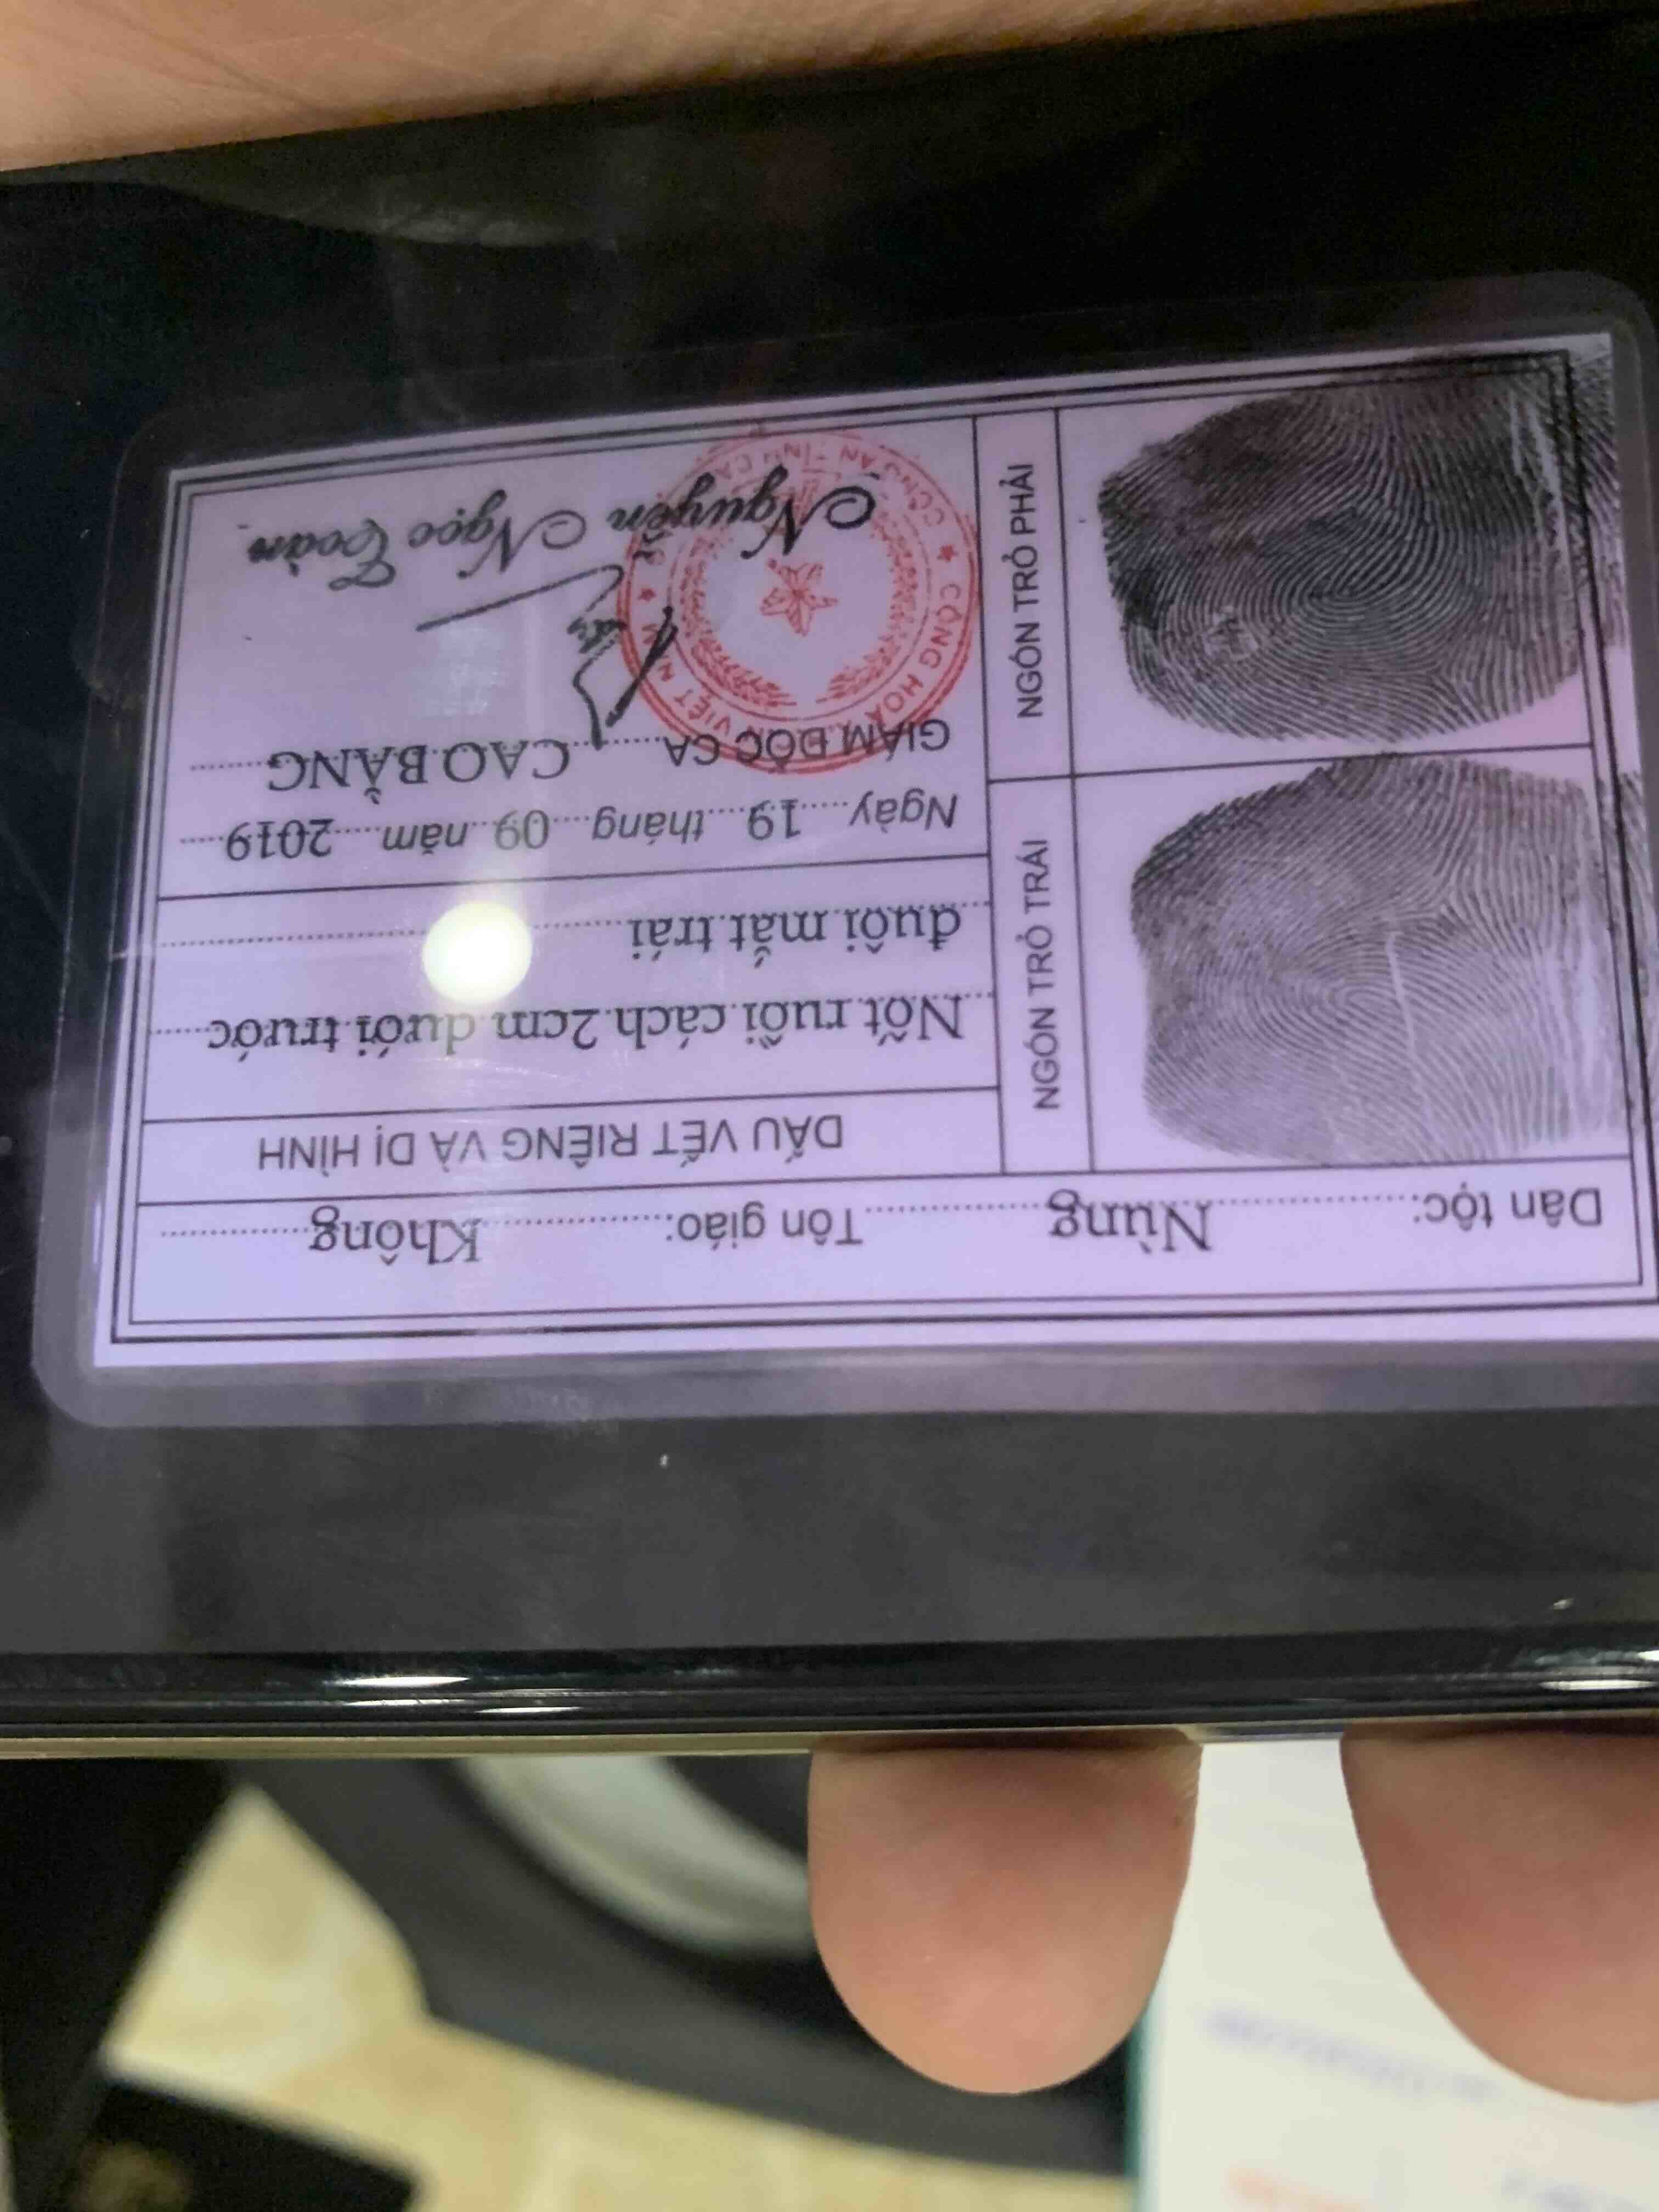 Dân tộc: Nùng Tôn giáo: Không
NGÓN TRỎ TRÁI
NGÓN TRỎ PHẢI
DẤU VẾT RIÊNG VÀ DỊ HÌNH
Nốt ruồi cách 2cm dưới trước
đuôi mắt trái
Ngày 19 tháng 09 năm 2019
GIÁM ĐỐC CA CAO BẰNG
CỘNG HOÀ VIỆT NAM
CÔNG AN TỈNH CA
Nguyễn Ngọc Toàn